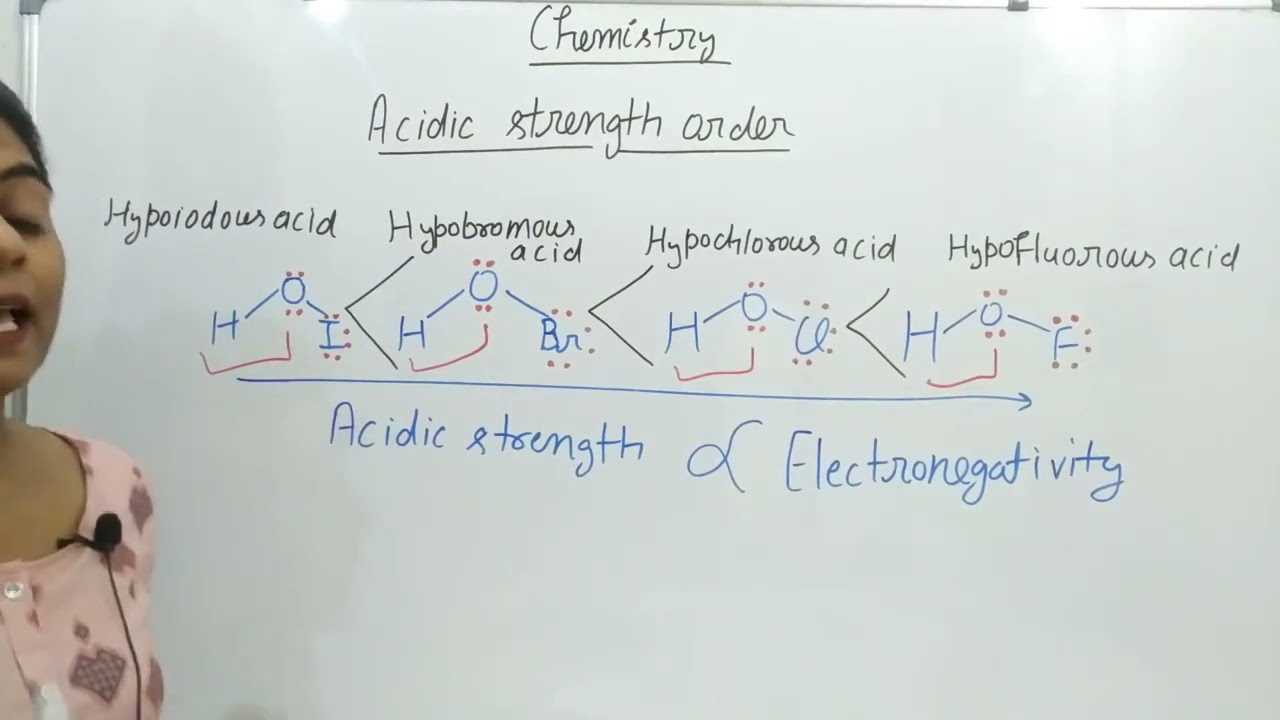 Chemistry
Acidic strength order
Hypoiodous acid
Hypobromous
acid
Hypochlorous acid
HypoFluorous acid
H O I < H O Br < H O Cl < H O F
Acidic strength ∝ Electronegativity